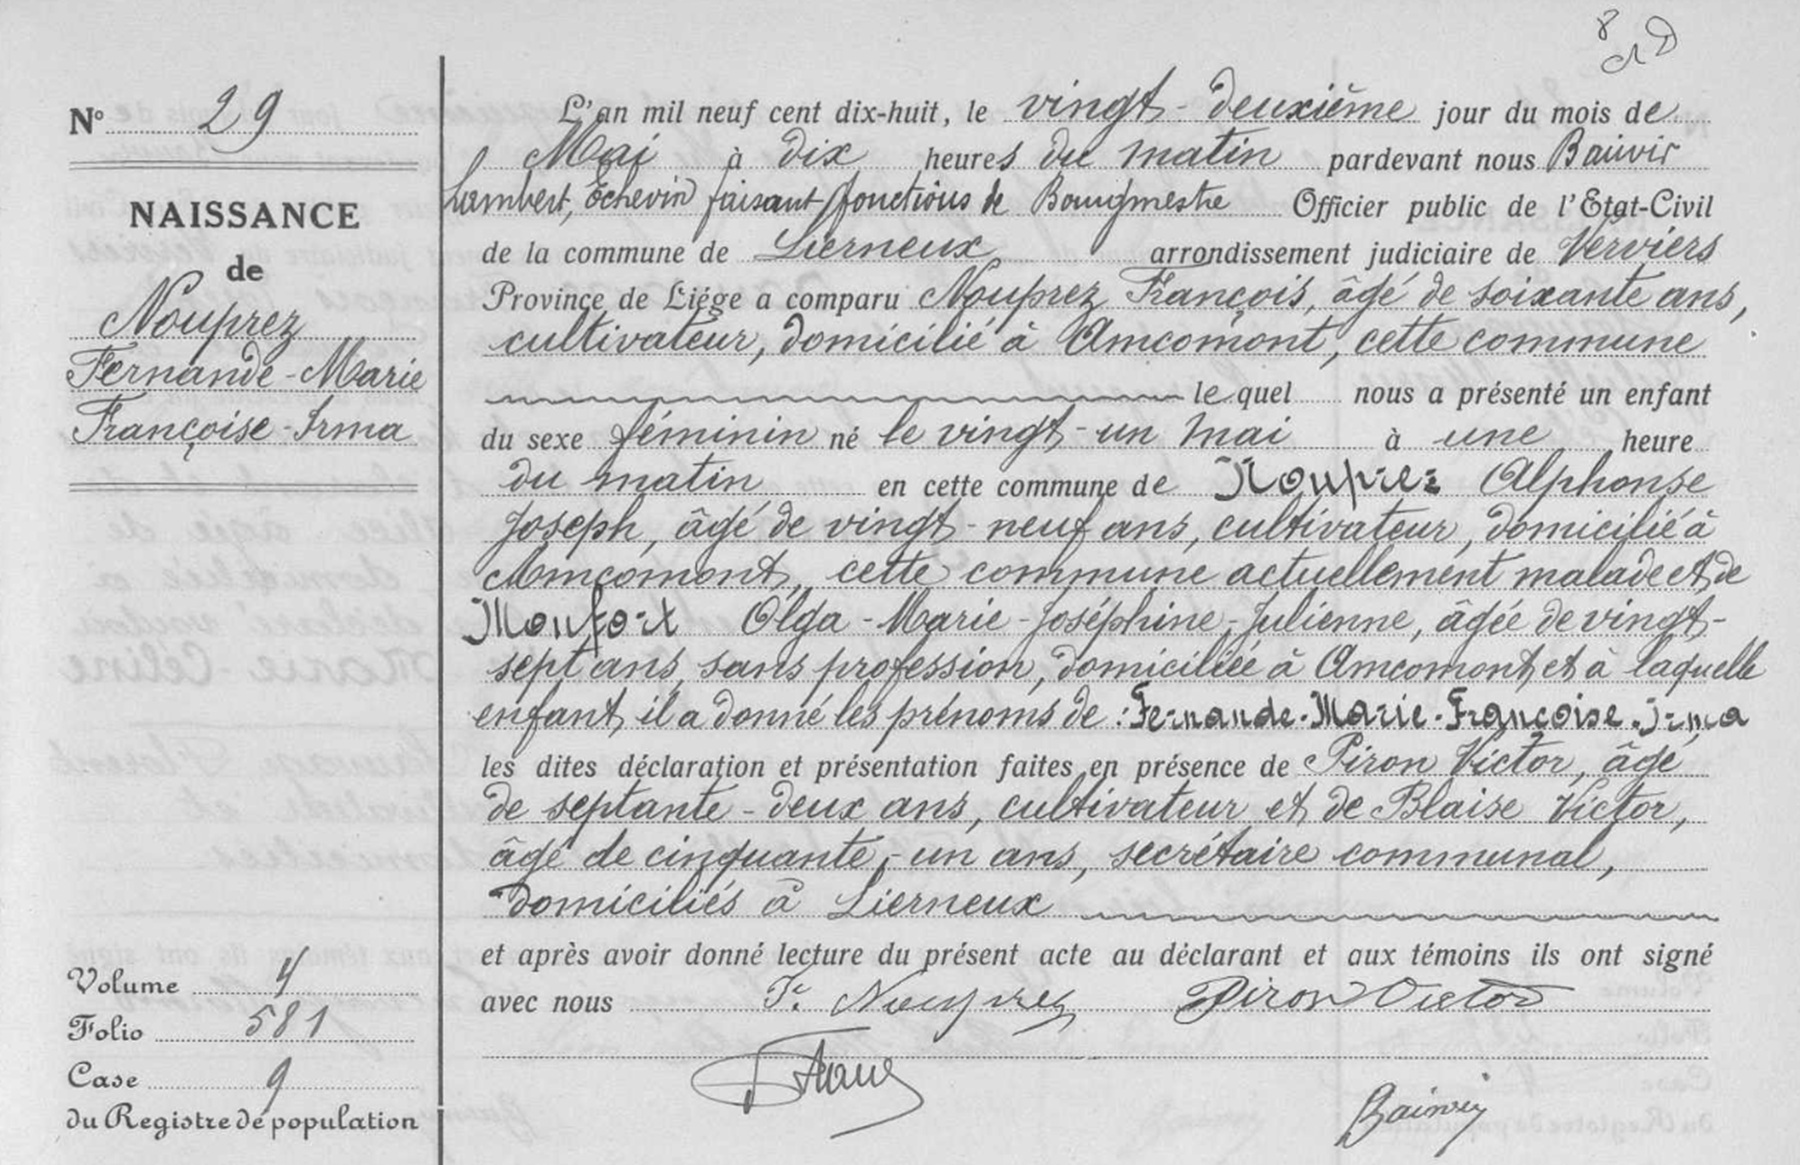 N° 29
NAISSANCE
de
Nouprez
Fernande-Marie
Françoise-Irma
Volume 4
Folio 581
Case 9
du Registre de population
L'an mil neuf cent dix-huit, le vingt-deuxième jour du mois de
Mai à dix heures du matin pardevant nous Bauvir
Lambert, Echevin faisant fonctions de Bourgmestre Officier public de l'Etat-Civil
de la commune de Lierneux arrondissement judiciaire de Verviers
Province de Liége a comparu Nouprez François, âgé de soixante ans,
cultivateur, domicilié à Amcomont, cette commune
le quel nous a présenté un enfant
du sexe féminin né le vingt-un mai à une heure
du matin en cette commune de Nouprez Alphonse
Joseph, âgé de vingt-neuf ans, cultivateur, domicilié à
Amcomont, cette commune actuellement malade et de
Monfort Olga-Marie-Joséphine-Julienne, âgée de vingt-
sept ans, sans profession, domiciliée à Amcomont, et à laquelle
enfant, il a donné les prénoms de : Fernande-Marie-Françoise-Irma
les dites déclaration et présentation faites en présence de Piron Victor, âgé
de septante-deux ans, cultivateur et de Blaise Victor,
âgé de cinquante-un ans, secrétaire communal,
domiciliés à Lierneux
et après avoir donné lecture du présent acte au déclarant et aux témoins ils ont signé
avec nous F. Nouprez Piron Victor